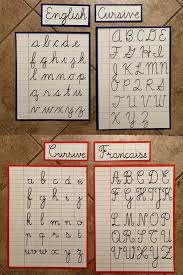 English Cursive
a b c d e
f g h i j k
l m n o p
q r s t u
v w x y z
A B C D E
F G H I
J K L M
N O P Q R S
T U V W
X Y Z
Cursive Francaise
a b c d e
f g h i j k
l m n o p
q r s t
u v w x y z
A B C D E
F G H I J K
L M N O P
Q R S T U
V W X Y Z